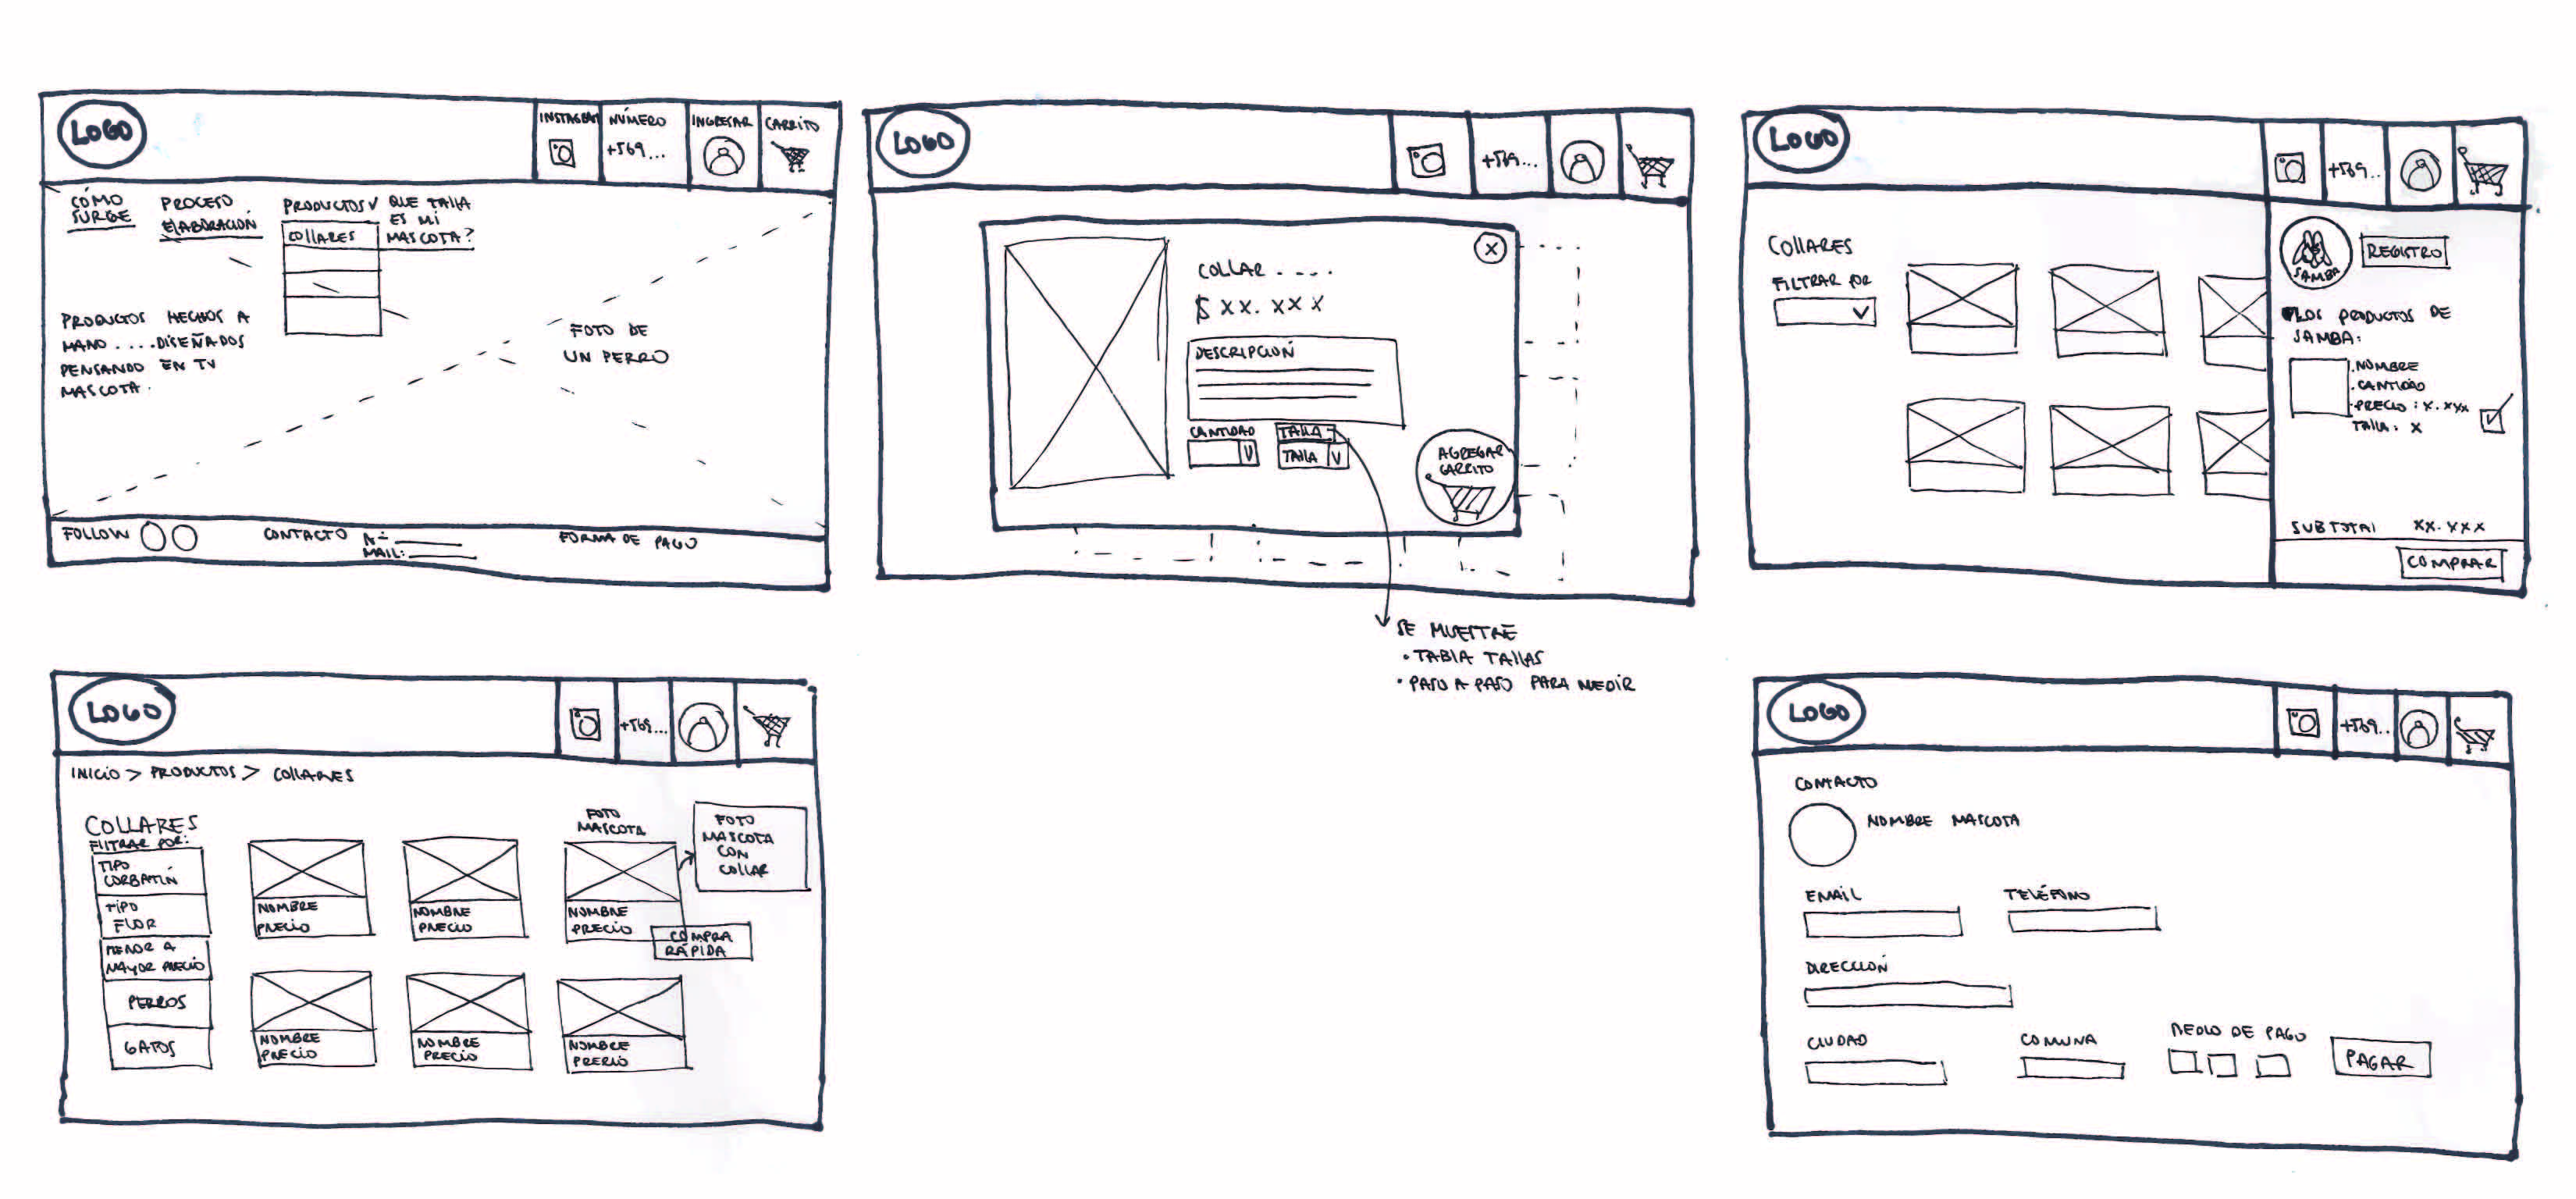 LOGO
INSTAGRAM
NÚMERO
+569...
INGRESAR
CARRITO
CÓMO
SURGE
PROCESO
ELABORACIÓN
PRODUCTOS
COLLARES
QUE TALLA
ES MI
MASCOTA?
PRODUCTOS HECHOS A
MANO ....DISEÑADOS
PENSANDO EN TU
MASCOTA.
FOTO DE
UN PERRO
FOLLOW
CONTACTO
N=
MAIL:
FORMA DE PAGO
LOGO
+569...
X
COLLAR ----.
$ XX. XXX
DESCRIPCIÓN
CANTIDAD
TALLA
TALLA
AGREGAR
CARRITO
SE MUESTRE
• TABLA TALLAS
• PASO A PASO PARA MEDIR
LOGO
+569..
COLLARES
FILTRAR POR
SAMBA
REGISTRO
LOS PRODUCTOS DE
SAMBA:
.NOMBRE
.CANTIDAD
.PRECIO : X.XXX
TALLA: X
SUBTOTAL XX.XXX
COMPRAR
LOGO
+569...
INICIO > PRODUCTOS > COLLARES
COLLARES
FILTRAR POR:
TIPO
CORBATÍN
TIPO
FLOR
MENOR A
MAYOR PRECIO
PERROS
GATOS
NOMBRE
PRECIO
NOMBRE
PRECIO
FOTO
MASCOTA
NOMBRE
PRECIO
FOTO
MASCOTA
CON
COLLAR
COMPRA
RÁPIDA
NOMBRE
PRECIO
NOMBRE
PRECIO
NOMBRE
PRECIO
LOGO
+569..
CONTACTO
NOMBRE MASCOTA
EMAIL
TELÉFONO
DIRECCIÓN
CIUDAD
COMUNA
MEDIO DE PAGO
PAGAR